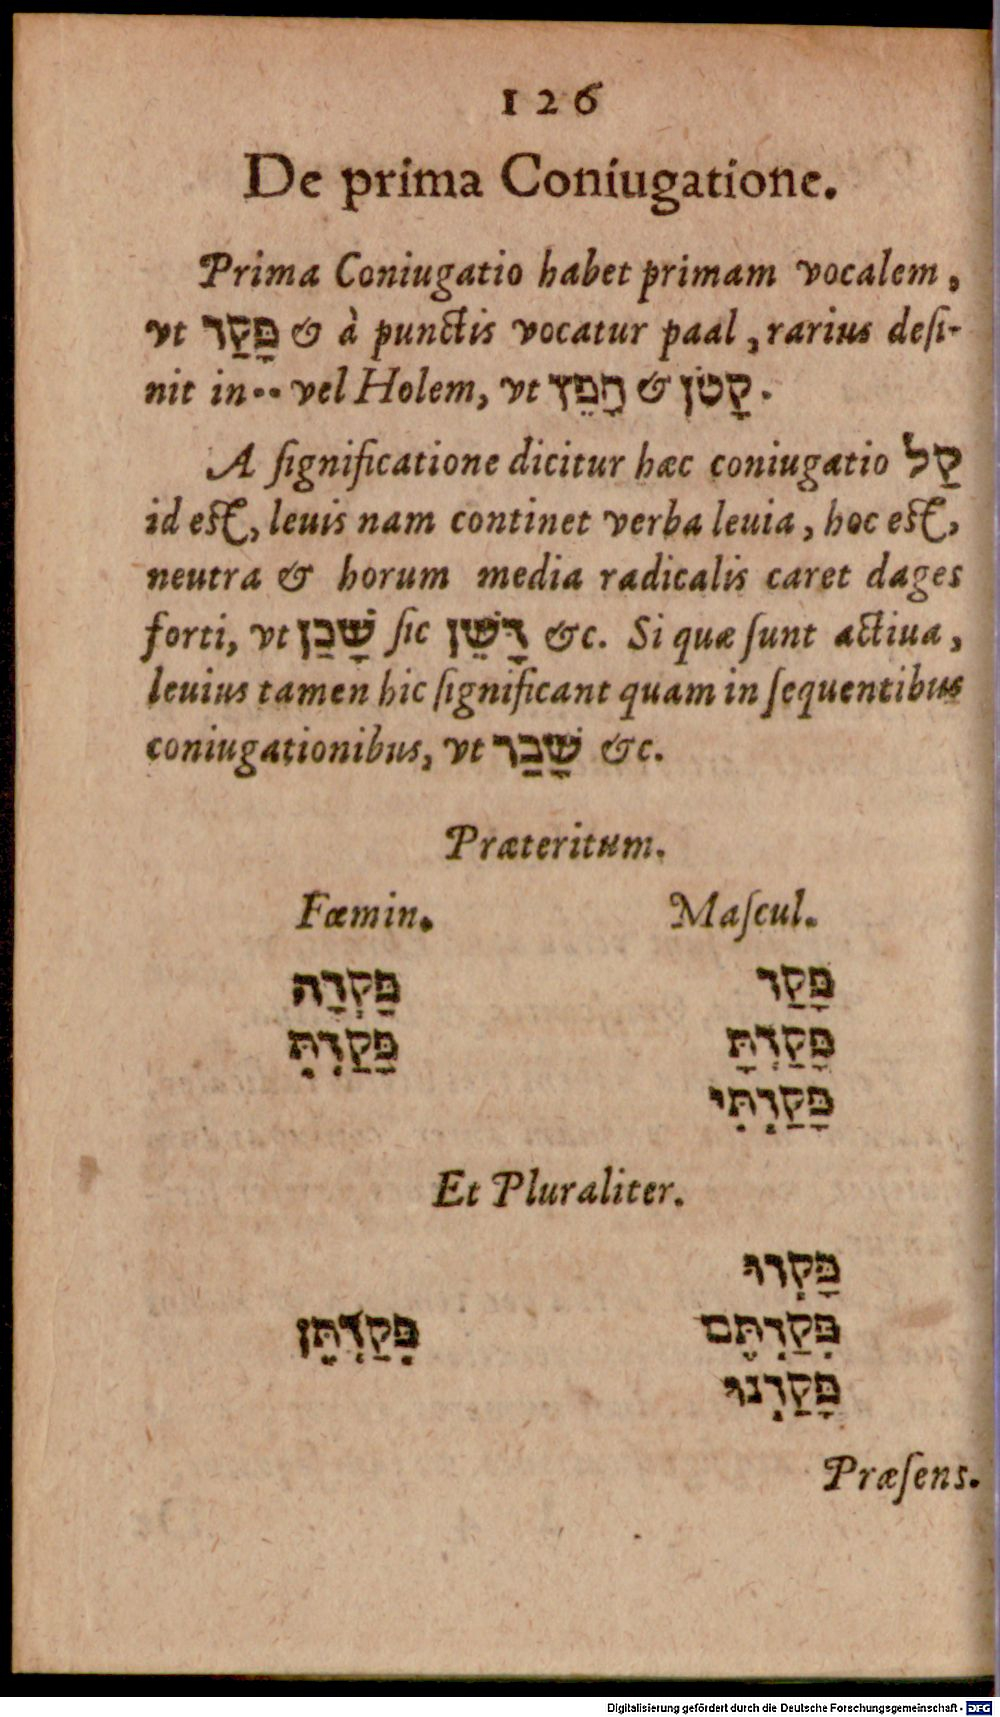 126
De prima Coniugatione.
Prima Coniugatio habet primam vocalem,
vt פָּקַד & à punctis vocatur paal, rarius desi-
nit in ‥ vel Holem, vt קָטֹן & חָפֵץ.
A significatione dicitur hæc coniugatio קַל
id est, leuis nam continet verba leuia, hoc est,
neutra & horum media radicalis caret dages
forti, vt שָׁכַן sic דָּשֵׁן &c. Si quæ sunt actiua,
leuius tamen hic significant quam in sequentibus
coniugationibus, vt שָׁבַר &c.
Præteritum.
Fœmin. Mascul.
פָּקְדָה פָּקַד
פָּקַדְתְּ פָּקַדְתָּ
פָּקַדְתִּי
Et Pluraliter.
פָּקְדוּ
פְּקַדְתֶּן פְּקַדְתֶּם
פָּקַדְנוּ
Præsens.
Digitalisierung gefördert durch die Deutsche Forschungsgemeinschaft - DFG